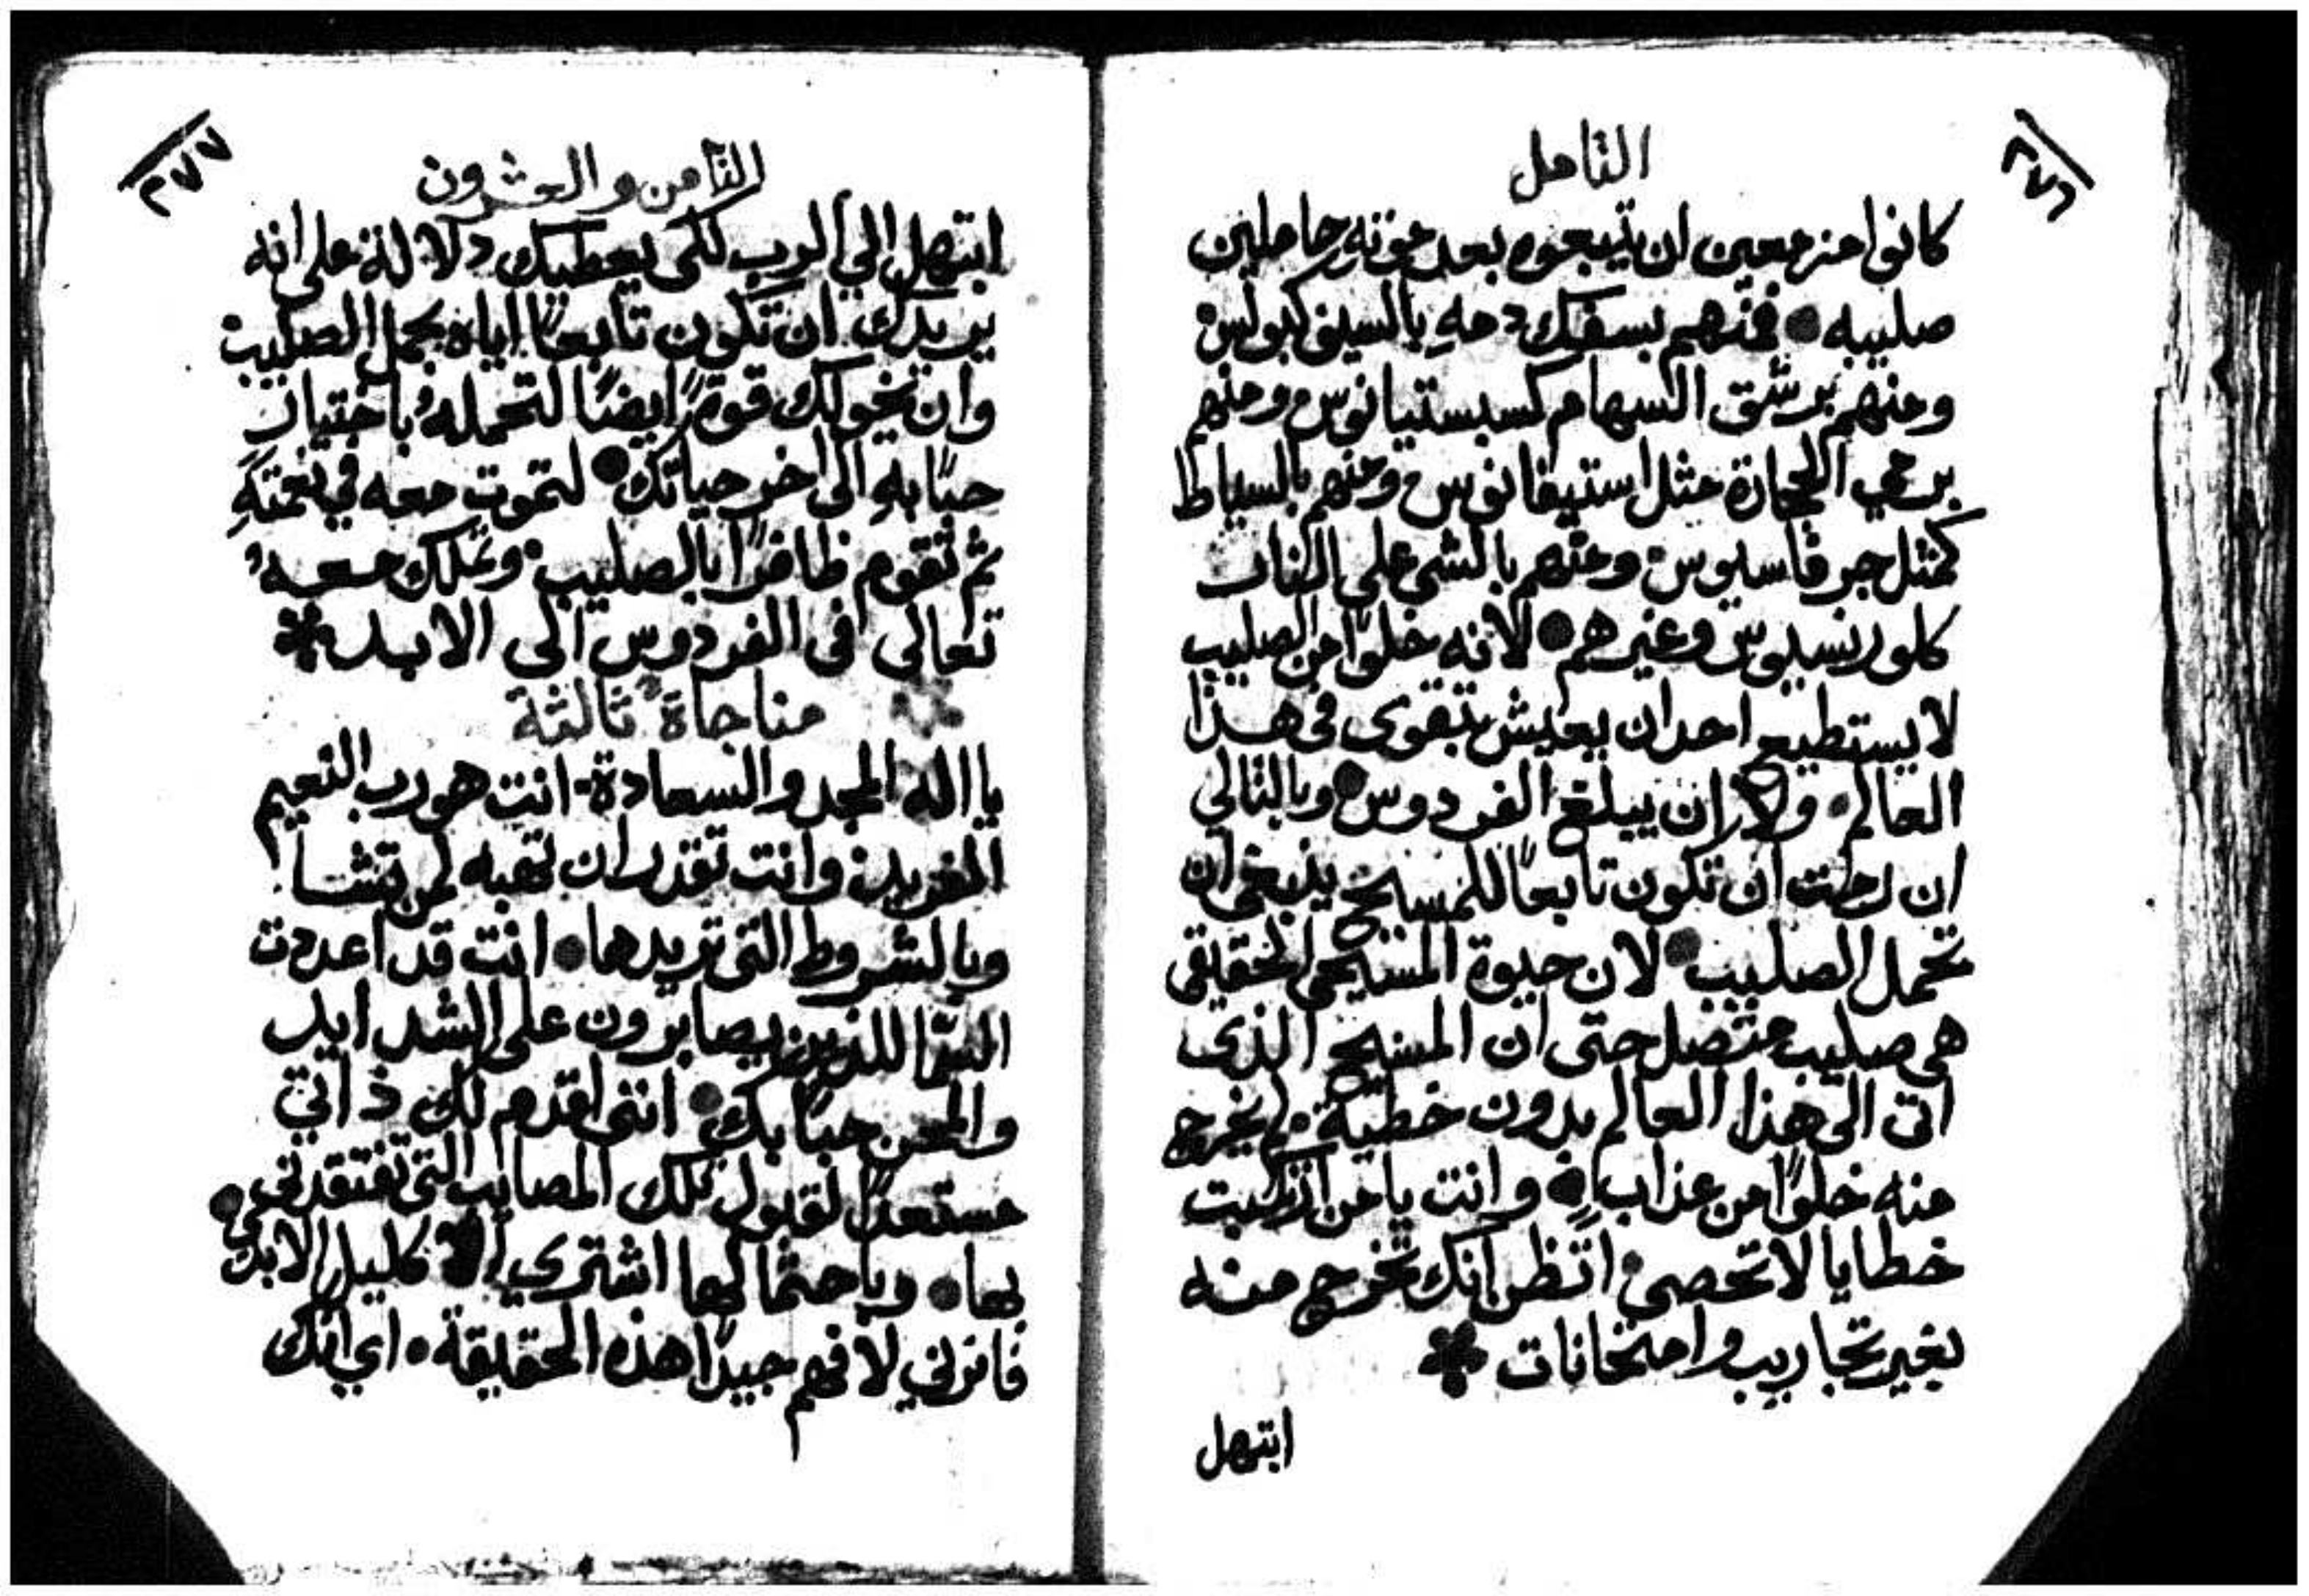 ٢٧٦
التامل
كانوا مزمعين ان يتبعوه بعد موته حاملين
صليبه • فمنهم بسفك دمهِ بالسيف كبولس
ومنهم برشق السهام كسبستيانوس ومنهم
برمي الحجارة مثل استيفانوس ومنهم بالسياط
كمثل جرفاسيوس ومنهم بالشي على النار
كلورنسيوس وغيرهم • لانه خلوًا من الصليب
لا يستطيع احد ان يعيش بتقوى في هذا
العالم • ولا ان يبلغ الفردوس • وبالتالي
ان رمت ان تكون تابعًا للمسيح ينبغي ان
تحمل الصليب • لان حيوة المسيحي الحقيقي
هي صليب متصل حتى ان المسيح الذي
اتى الى هذا العالم بدون خطية • لم يخرج
منه خلوًا من عذاباتٍ • وانت يا من ارتكبت
خطايا لا تحصى • اتظن انك تخرج منه
بغير تجاريب وامتحانات
ابتهل
٢٧٧
الثامن والعشرون
ابتهل الي الرب لكي يعطيك دلالة على انه
يريدك ان تكون تابعًا اياه بحمل الصليب
وان يخولك قوةً ايضًا لتحملهُ باختيارٍ
حبًا بهِ الى اخر حياتك • لتموت معه في نعمتهِ
ثم تقوم ظافرًا بالصليب • وتملك معهُ
تعالى في الفردوس الى الابد
مناجاة ثالثة
يا اله المجد والسعادة • انت هو رب النعيم
الفريد • وانت تقدر ان تهبه لمن تشا
وبالشروط التي تريدها • انت قد اعددت
السما للذين يصابرون على الشدايد
والمحن حبًا بك • انني اقدم لك ذاتي
مستعدًا لقبول تلك المصايب التي تفتقدني
بها • وباحتمالها اشتري الاكليل الابدي •
فانرني لافهم جيدًا هذه الحقيقة • اي انك